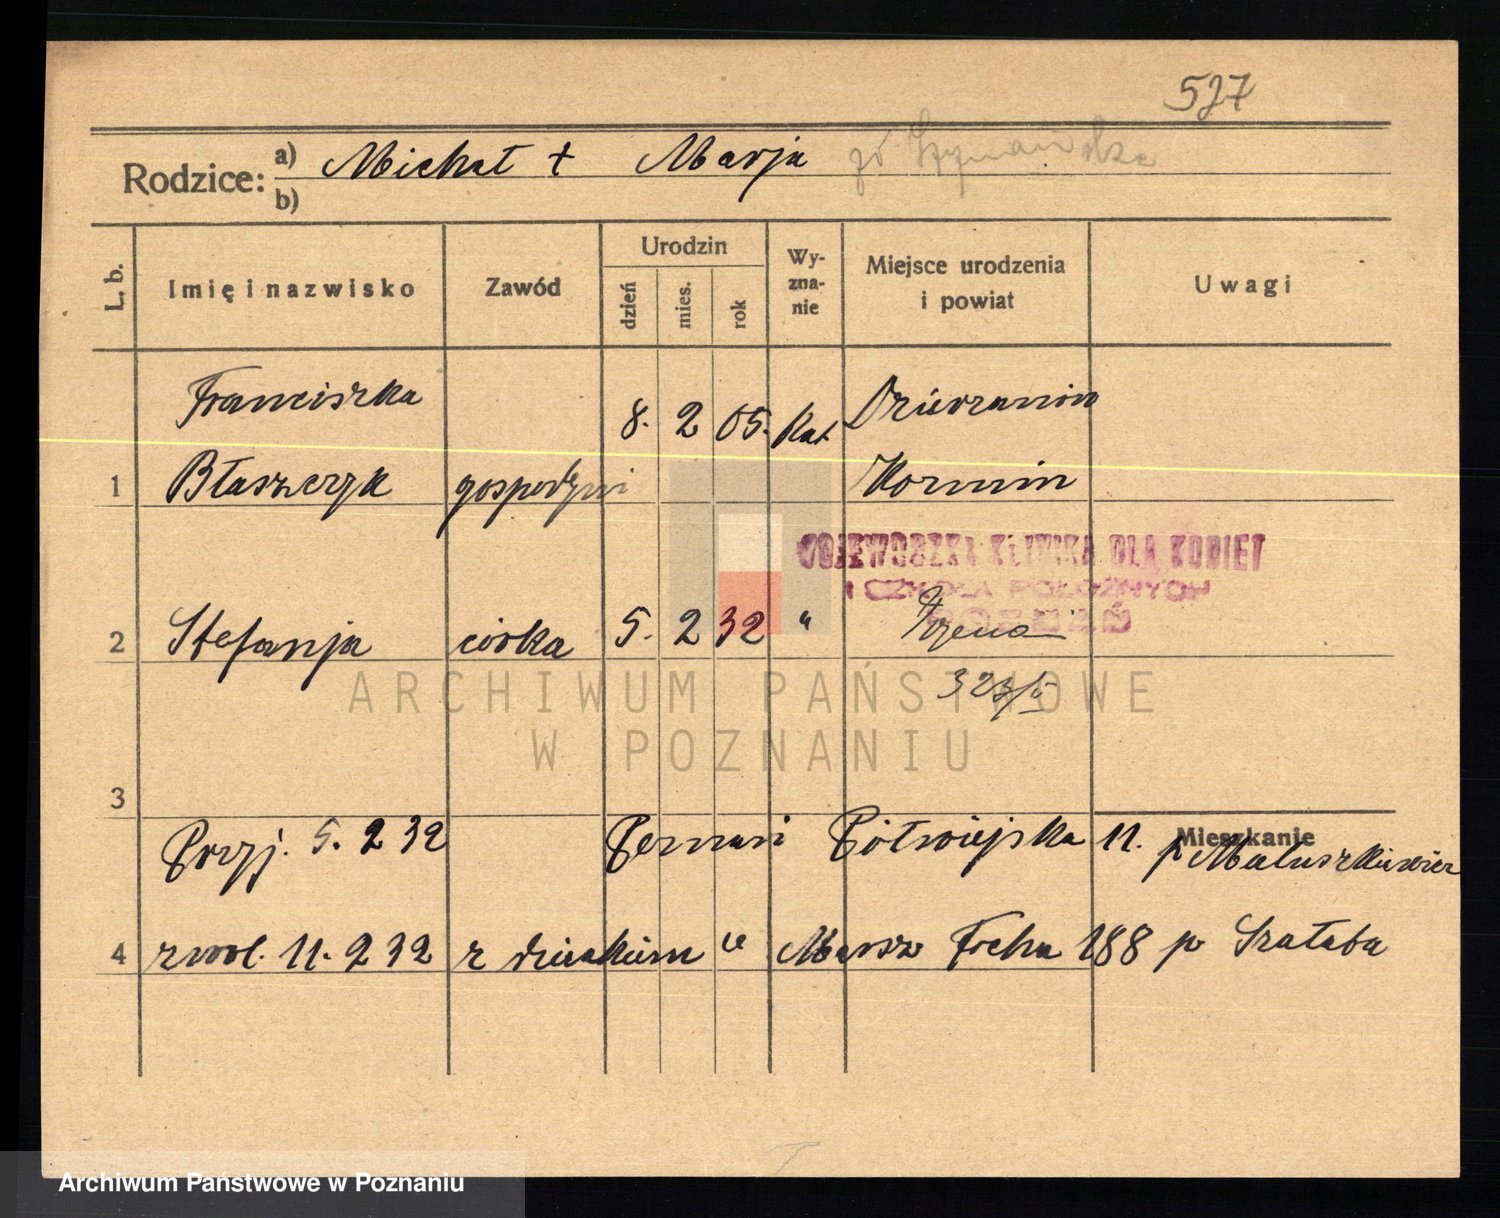 527
Rodzice: a) Michał + Marja zd. Szymańska
b)
L. b. Imię i nazwisko Zawód Urodzin dzień mies. rok Wy-zna-nie Miejsce urodzenia i powiat Uwagi
Franciszka 8. 2 05. Kat
1 Błaszczyk gospodyni
WOJEWÓDZKA KLINIKA DLA KOBIET
I SZKOŁA POŁOŻNYCH
POZNAŃ
2 Stefanja córka 5. 2 32 "
ARCHIWUM PAŃSTWOWE
W POZNANIU
3
Mieszkanie
Przyj. 5. 2 32 Półwiejska 11. p
4 zwol. 11. 2 32 z dzieckiem Marsz Focha 188 p Szałaba
Archiwum Państwowe w Poznaniu